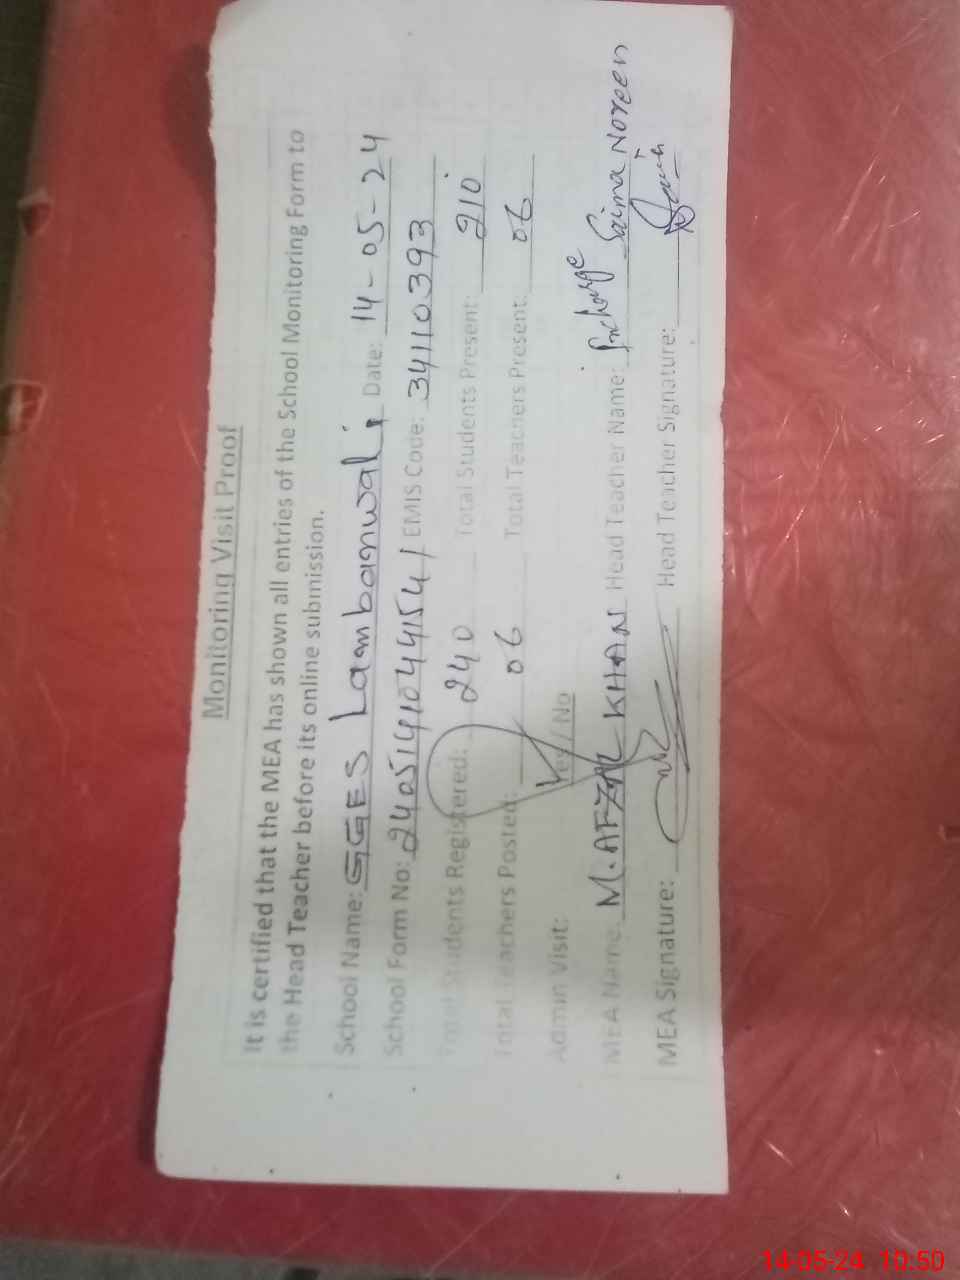 Monitoring Visit Proof
It is certified that the MEA has shown all entries of the School Monitoring Form to
the Head Teacher before its online submission.
School Name: GGES Lambanwali Date: 14-05-24
School Form No: 2405141044154 / EMIS Code: 34110393
Total Students Registered: 240 Total Students Present: 210
Total Teachers Posted: 06 Total Teachers Present: 06
Admin Visit: Yes / No
MEA Name: M. AFZAL KHAN Head Teacher Name: Incharge Saima Noreen
MEA Signature: Head Teacher Signature:
14-05-24 10:50